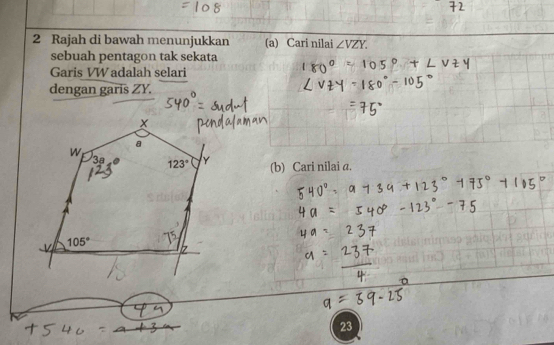 = 108
72
2 Rajah di bawah menunjukkan
sebuah pentagon tak sekata
Garis VW adalah selari
dengan garis ZY.
540° = sudut
pendalaman
X
a
W
3a
123°
123°
Y
V
105°
75°
Z
4a
+540 = a+3a
(a) Cari nilai ∠VZY.
180° = 105° + ∠VZY
∠VZY = 180° - 105°
= 75°
(b) Cari nilai a.
540° = a + 3a + 123° + 75° + 105°
4a = 540° - 123° - 75
4a = 237
a = 237
4
a = 59.25°
23